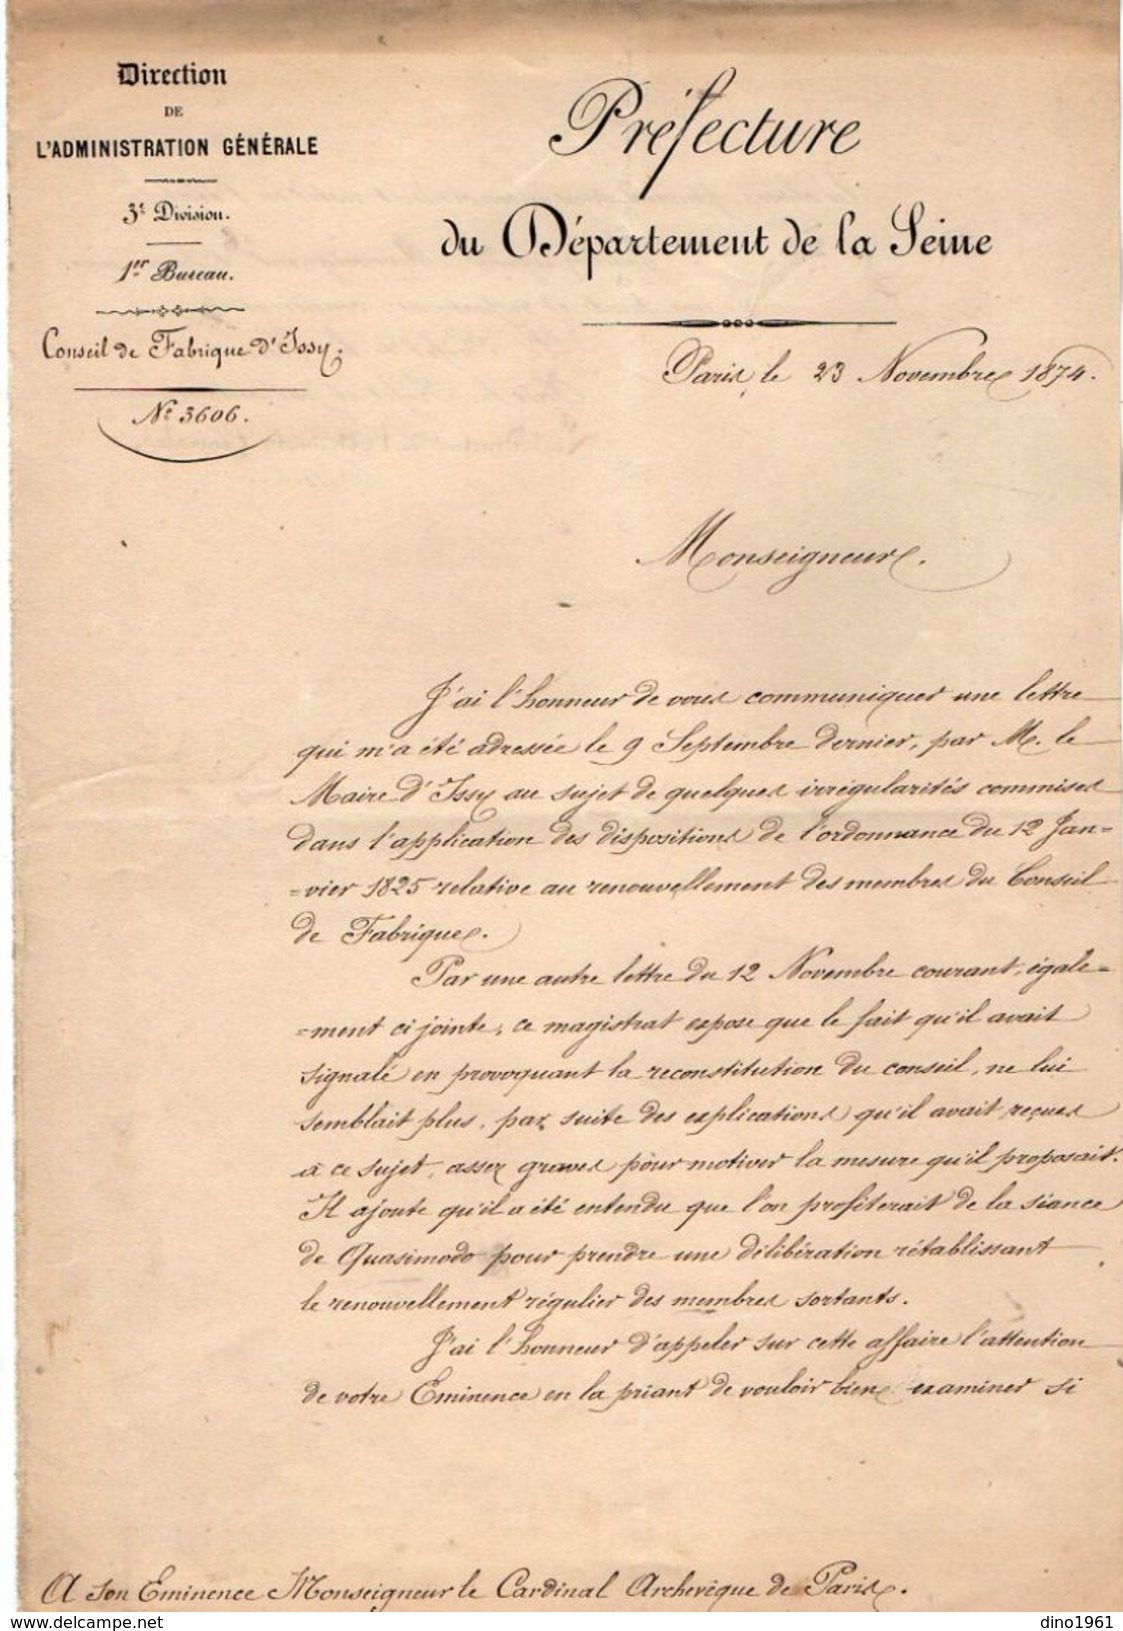 Direction
DE
L'ADMINISTRATION GÉNÉRALE
3e Division.
1er Bureau.
Conseil de Fabrique d'Issy.
No 3606.
Préfecture
du Département de la Seine
Paris, le 23 Novembre 1874.
Monseigneur.
J'ai l'honneur de vous communiquer une lettre
qui m'a été adressée le 9 Septembre dernier, par M. le
Maire d'Issy au sujet de quelques irrégularités commises
dans l'application des dispositions de l'ordonnance du 12 Jan=
=vier 1825 relative au renouvellement des membres du Conseil
de Fabrique.
Par une autre lettre du 12 Novembre courant, égale=
=ment ci jointe, ce magistrat expose que le fait qu'il avait
signalé en provoquant la reconstitution du conseil, ne lui
semblait plus, par suite des explications qu'il avait reçues
à ce sujet, assez graves pour motiver la mesure qu'il proposait.
Il ajoute qu'il a été entendu que l'on profiterait de la séance
de Quasimodo pour prendre une délibération rétablissant
le renouvellement régulier des membres sortants.
J'ai l'honneur d'appeler sur cette affaire l'attention
de votre Eminence en la priant de vouloir bien examiner si
A Son Eminence Monseigneur le Cardinal Archevêque de Paris.
dino1961